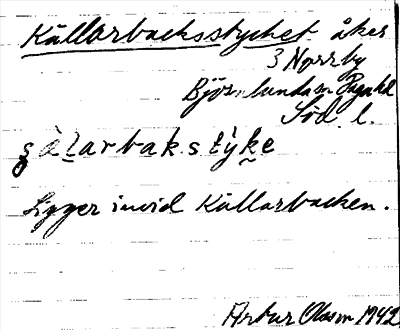 Källarbacksstycket åker
3 Norrby
Björnlunda sn Daga hd
Söd. l.
sälarbakstyke
Ligger invid Källarbacken.
Artur Olsson 1942